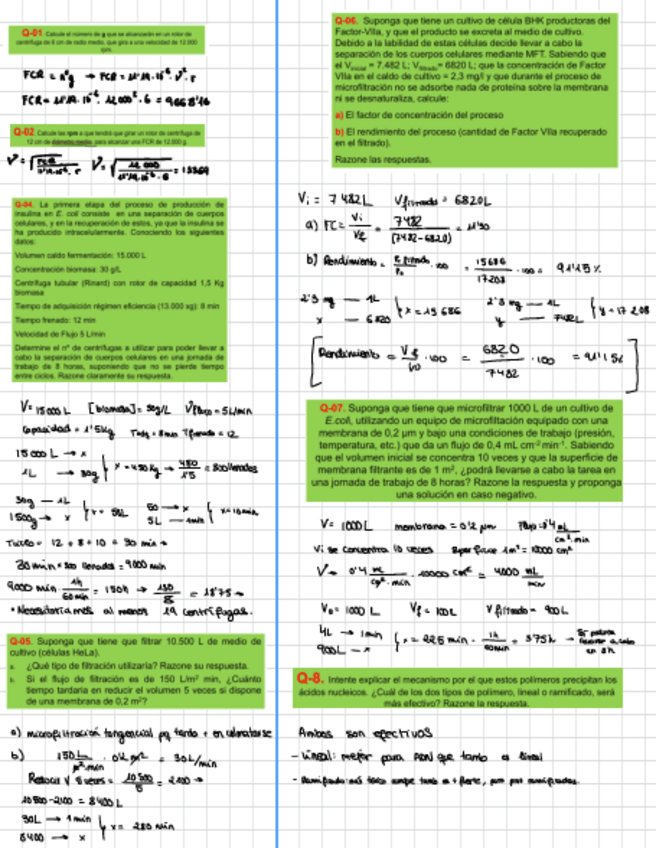 Q-01 Calcule el número de g que se alcanzarán en un rotor de
centrífuga de 6 cm de radio medio, que gira a una velocidad de 12.000
rpm.
FCR = nº g → FCR = 11'18·10⁻⁶ · V² · r
FCR = 11'18·10⁻⁶ · 12000² · 6 =
Q-02 Calcule las rpm a que tendrá que girar un rotor de centrífuga de
12 cm de diámetro medio, para alcanzar una FCR de 12.000 g.
Q-04. La primera etapa del proceso de producción de
insulina en E. coli consiste en una separación de cuerpos
celulares, y en la recuperación de estos, ya que la insulina se
ha producido intracelularmente. Conociendo los siguientes
datos:
Volumen caldo fermentación: 15.000 L
Concentración biomasa: 30 g/L
Centrífuga tubular (Rinard) con rotor de capacidad 1,5 Kg
biomasa
Tiempo de adquisición régimen eficiencia (13.000 xg): 8 min
Tiempo frenado: 12 min
Velocidad de Flujo 5 L/min
Determine el nº de centrífugas a utilizar para poder llevar a
cabo la separación de cuerpos celulares en una jornada de
trabajo de 8 horas, suponiendo que no se pierde tiempo
entre ciclos. Razone claramente su respuesta.
V = 15000 L [biomasa] = 30g/L V flujo = 5L/min
Capacidad = 1'5kg T frenado = 12
15000 L → x
1L → 30g } x = 450 Kg → 450/1'5 = 300 llenados
30g — 1L
1500g → x } x = 50L 50 → x
5L — 1min } x = 10 min
12 + 8 + 10 = 30 min →
30 min · 300 llenados = 9000 min
9000 min · 1h/60min = 150h → 150/8 = 18'75 →
• Necesitaríamos al menos 19 centrífugas.
Q-05. Suponga que tiene que filtrar 10.500 L de medio de
cultivo (células HeLa).
a. ¿Qué tipo de filtración utilizaría? Razone su respuesta.
b. Si el flujo de filtración es de 150 L/m² min, ¿Cuánto
tiempo tardaría en reducir el volumen 5 veces si dispone
de una membrana de 0,2 m²?
a) microfiltración tangencial pq tarda + en colmatarse
b) 150 L/m²·min · 0'2 m² = 30L/min
Reducir V 5 veces = 10500/5 = 2100 →
10500-2100 = 8400 L
30L → 1 min
8400 → x } x = 280 min
Q-06. Suponga que tiene un cultivo de célula BHK productoras del
Factor-VIIa, y que el producto se excreta al medio de cultivo.
Debido a la labilidad de estas células decide llevar a cabo la
separación de los cuerpos celulares mediante MFT. Sabiendo que
el V inicial = 7.482 L; V filtrado= 6820 L; que la concentración de Factor
VIIa en el caldo de cultivo = 2,3 mg/l y que durante el proceso de
microfiltración no se adsorbe nada de proteína sobre la membrana
ni se desnaturaliza, calcule:
a) El factor de concentración del proceso
b) El rendimiento del proceso (cantidad de Factor VIIa recuperado
en el filtrado).
Razone las respuestas.
Vi = 7482L Vfiltrado = 6820L
a) FC = Vi/Vf = 7482/(7482-6820) = 11'30
b) Rendimiento = · 100 = 15686/17208 · 100 = 91'15%
2'3 mg — 1L
x — 6820 } x = 15686 2'3 mg — 1L
y — 7482L } y = 17208
[Rendimiento = Vf/Vo · 100 = 6820/7482 · 100 = 91'15%]
Q-07. Suponga que tiene que microfiltrar 1000 L de un cultivo de
E.coli, utilizando un equipo de microfiltación equipado con una
membrana de 0,2 µm y bajo una condiciones de trabajo (presión,
temperatura, etc.) que da un flujo de 0,4 mL cm⁻² min⁻¹. Sabiendo
que el volumen inicial se concentra 10 veces y que la superficie de
membrana filtrante es de 1 m², ¿podrá llevarse a cabo la tarea en
una jornada de trabajo de 8 horas? Razone la respuesta y proponga
una solución en caso negativo.
V = 1000L membrana = 0'2 µm Flujo = 0'4 mL/cm²·min
Vi se concentra 10 veces Superficie 1m² = 10000 cm²
V = 0'4 mL/cm²·min · 10000 cm² = 4000 mL/min
Vo = 1000 L Vf = 100L V filtrado = 900L
4L → 1min
900L → x } x = 225 min · 1h/60min = 3'75h → Sí podría llevarse a cabo en 8h
Q-8. Intente explicar el mecanismo por el que estos polímeros precipitan los
ácidos nucleicos. ¿Cuál de los dos tipos de polímero, lineal o ramificado, será
más efectivo? Razone la respuesta.
Ambos son efectivos
- Lineal: mejor para ADN que tambn es lineal
- Ramificado: